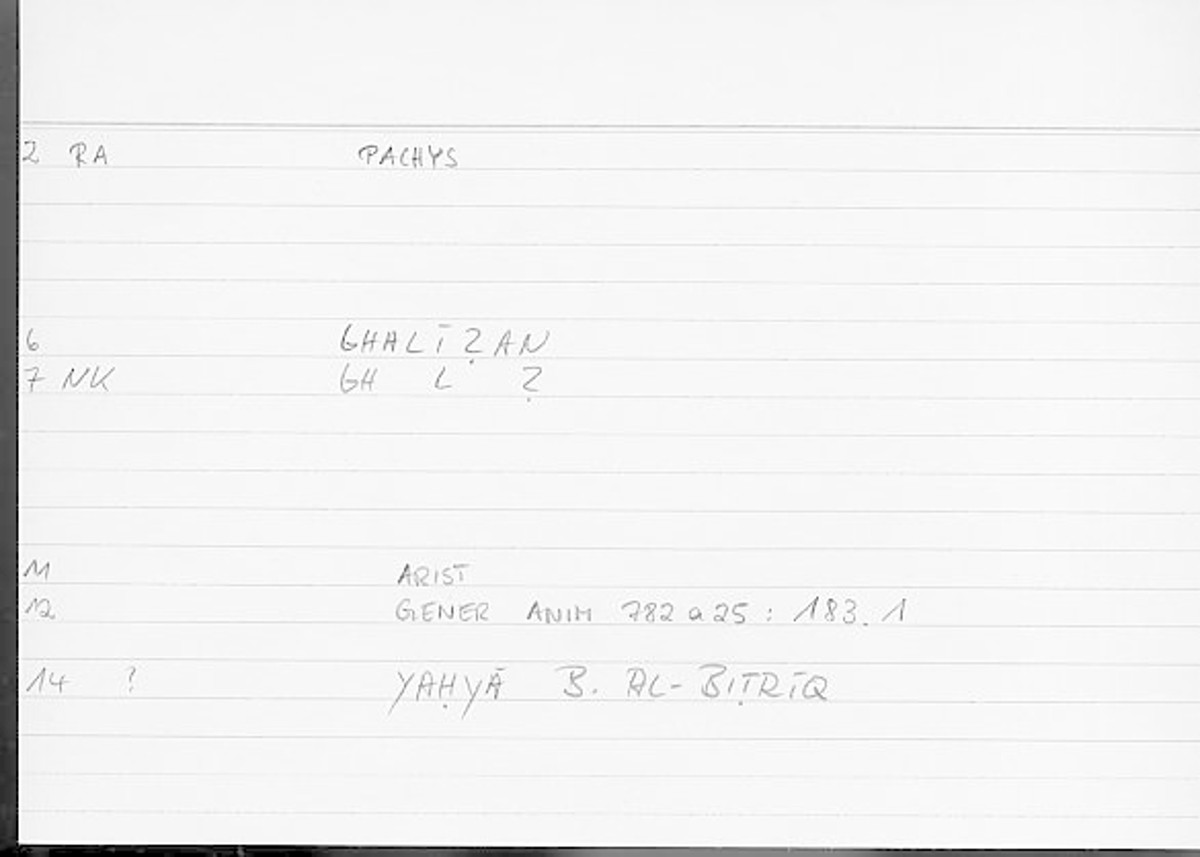 2 RA PACHYS
6 GHALĪẒAN
7 NK GH L Ẓ
11 ARIST
12 GENER ANIM 782 a 25 : 183.1
14 ? YAḤYĀ B. AL-BIṬRĪQ